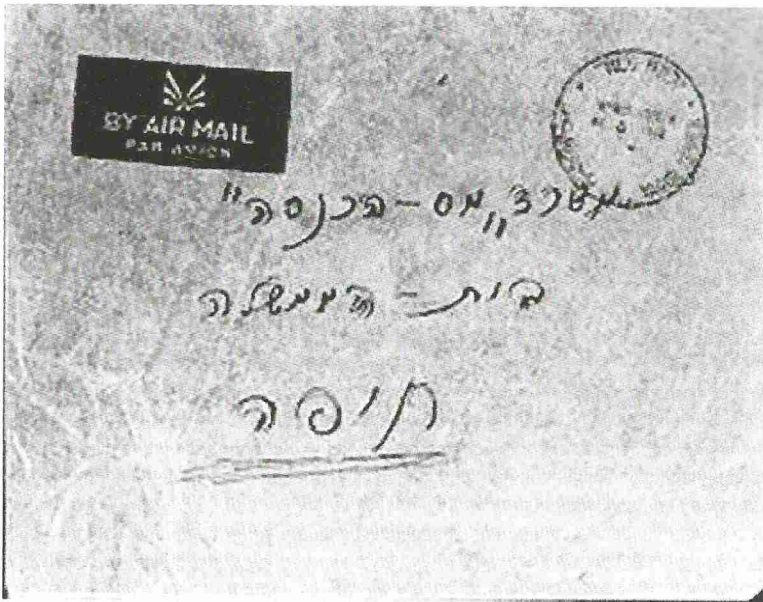 BY AIR MAIL
PAR AVION
משרד „מס - הכנסה"
בית - הממשלה
חיפה